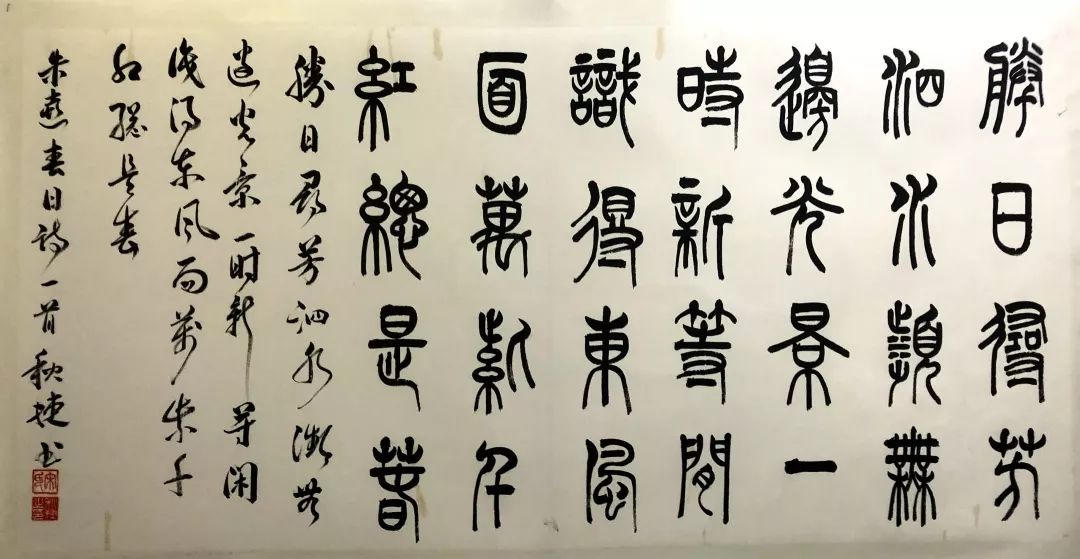 勝日尋芳
泗水瀕無
邊光景一
時新等閒
識得東風
面萬紫千
紅總是春
勝日尋芳泗水濱無
邊光景一时新等闲
識得东风面萬紫千
红總是春
朱熹春日詩一首秋捷书